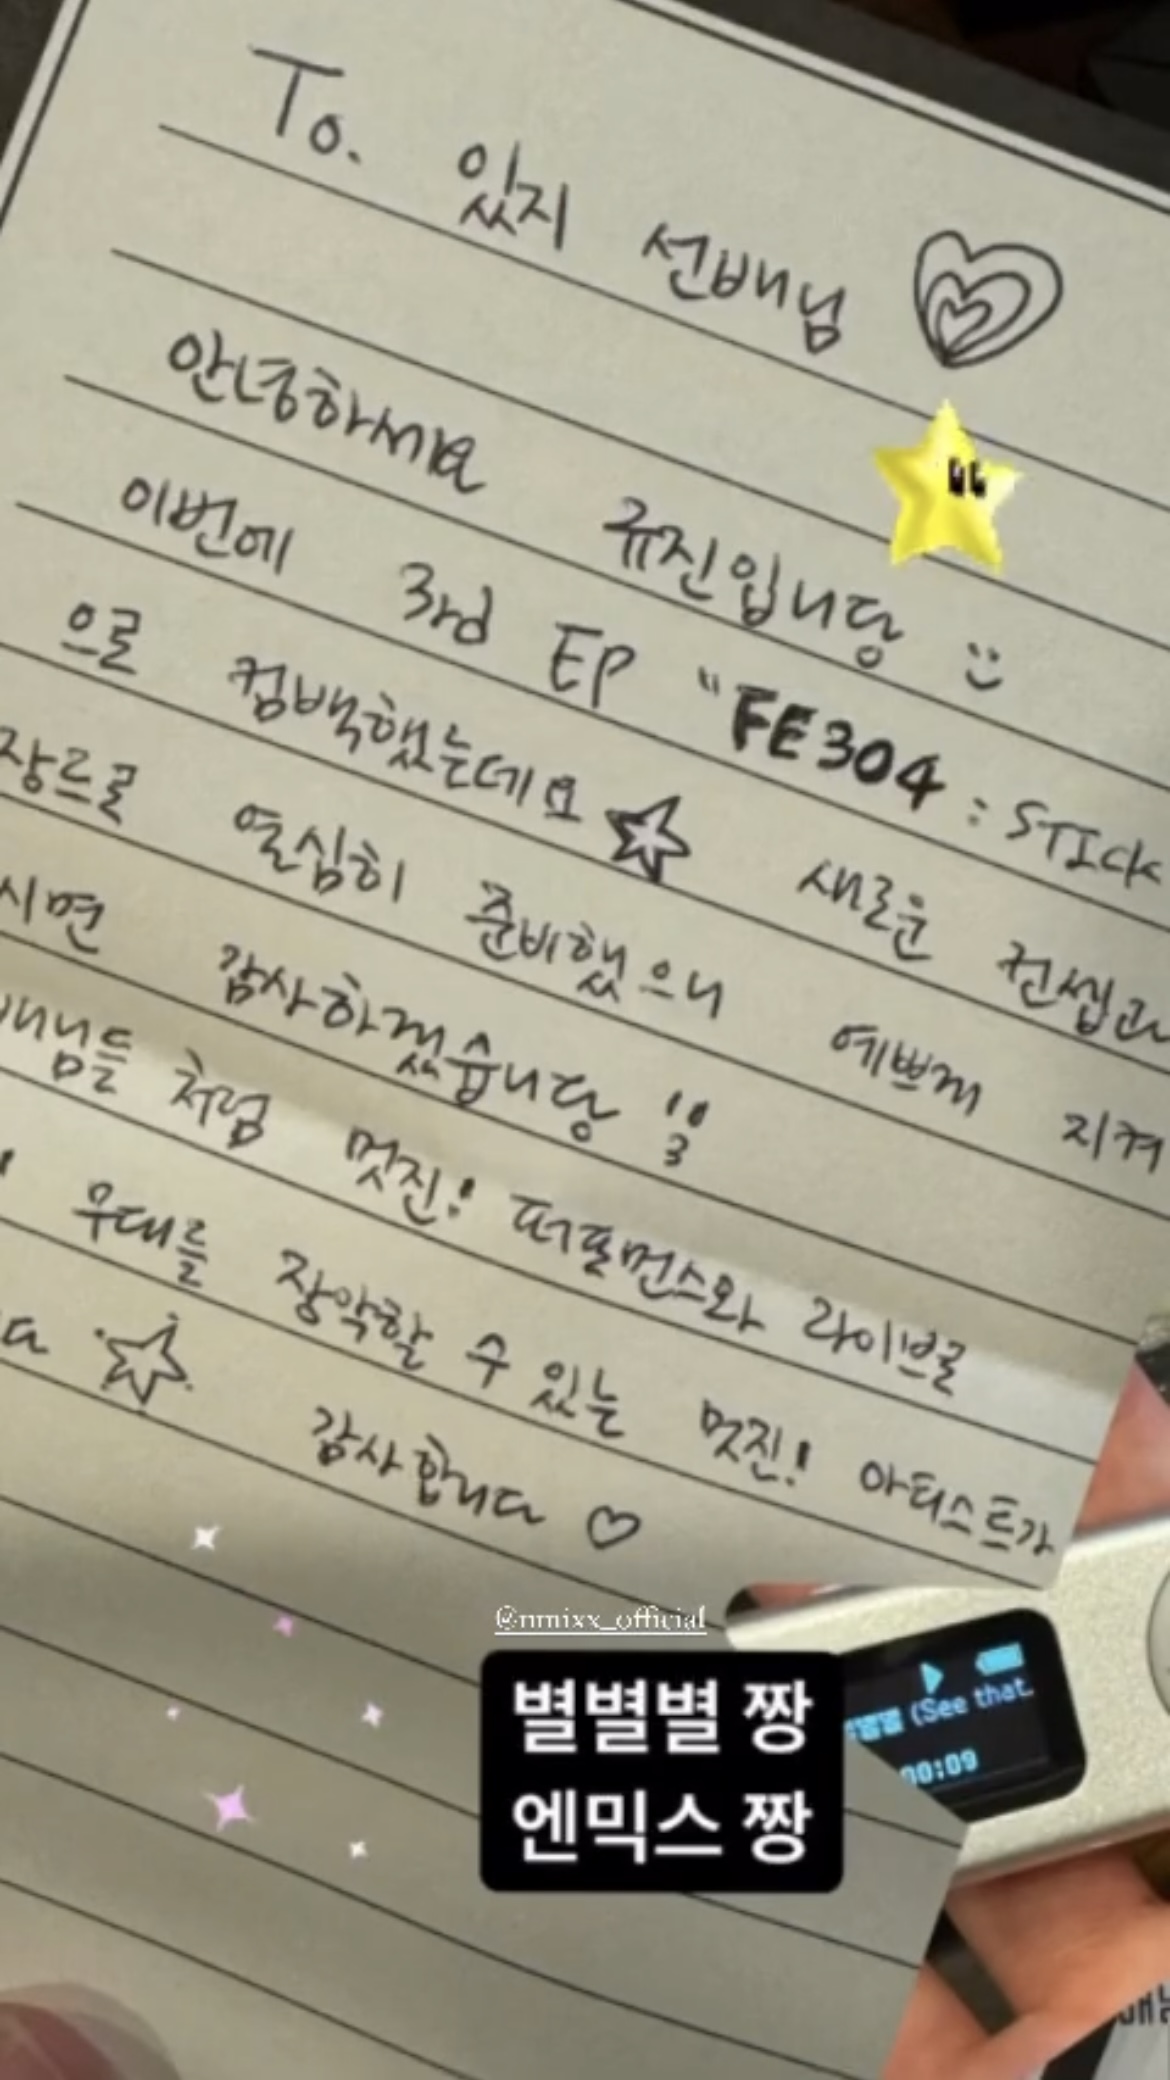 To. 있지 선배님
안녕하세요 규진입니당 :)
이번에 3rd EP "FE3O4 : STICK
으로 컴백했는데요 ☆ 새로운 컨셉과
장르로 열심히 준비했으니 예쁘게 지켜
시면 감사하겠습니당 !!
배님들 처럼 멋진! 퍼포먼스와 라이브로
무대를 장악할 수 있는 멋진! 아티스트가
☆ 감사합니다 ♡
@nmixx_official
별별별 짱
엔믹스 짱
별별 (See that.
00:09